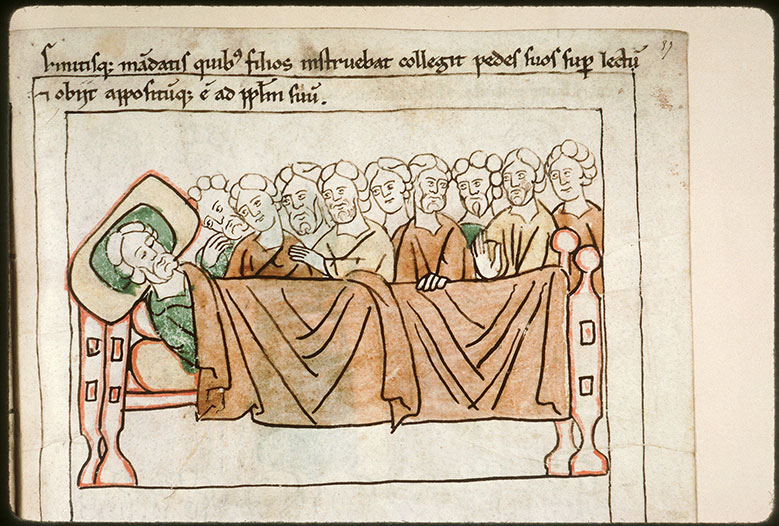 Finitisq; mādatis quibꝰ filios instruebat collegit pedes suos sup̄ lectū
⁊ obijt appositusq; ē ad ppl̄m suū.